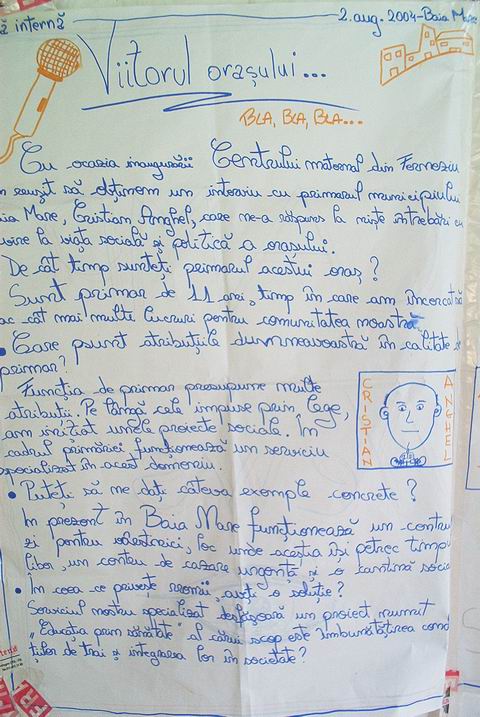 ă internă
2. aug. 2004 - Baia Mare
Viitorul orașului...
BLA, BLA, BLA...
Cu ocazia inaugurării Centrului maternal din Ferneziu
reușit să obținem un interviu cu primarul municipiului
Mare, Cristian Anghel, care ne-a răspuns la niște întrebări cu
vire la viața socială și politică a orașului.
De cât timp sunteți primarul acestui oraș?
Sunt primar de 11 ani, timp în care am încercat să
ac cât mai multe lucruri pentru comunitatea noastră
• Care sunt atribuțiile dumneavoastră în calitate de
primar?
Funcția de primar presupune multe
atribuții. Pe lângă cele impuse prin lege,
am inițiat unele proiecte sociale. În
cadrul primăriei funcționează un serviciu
specializat în acest domeniu.
CRISTIAN
ANGHEL
• Puteți să ne dați câteva exemple concrete?
În prezent în Baia Mare funcționează un centru
zi pentru vârstnici, loc unde aceștia își petrec timpul
liber, un centru de cazare urgentă și o cantină socia
• În ceea ce privește romii, aveți o soluție?
Serviciul nostru specializat desfășoară un proiect numit
„Educația prin sănătate" al cărui scop este îmbunătățirea cond
țiilor de trai și integrarea lor în societate?